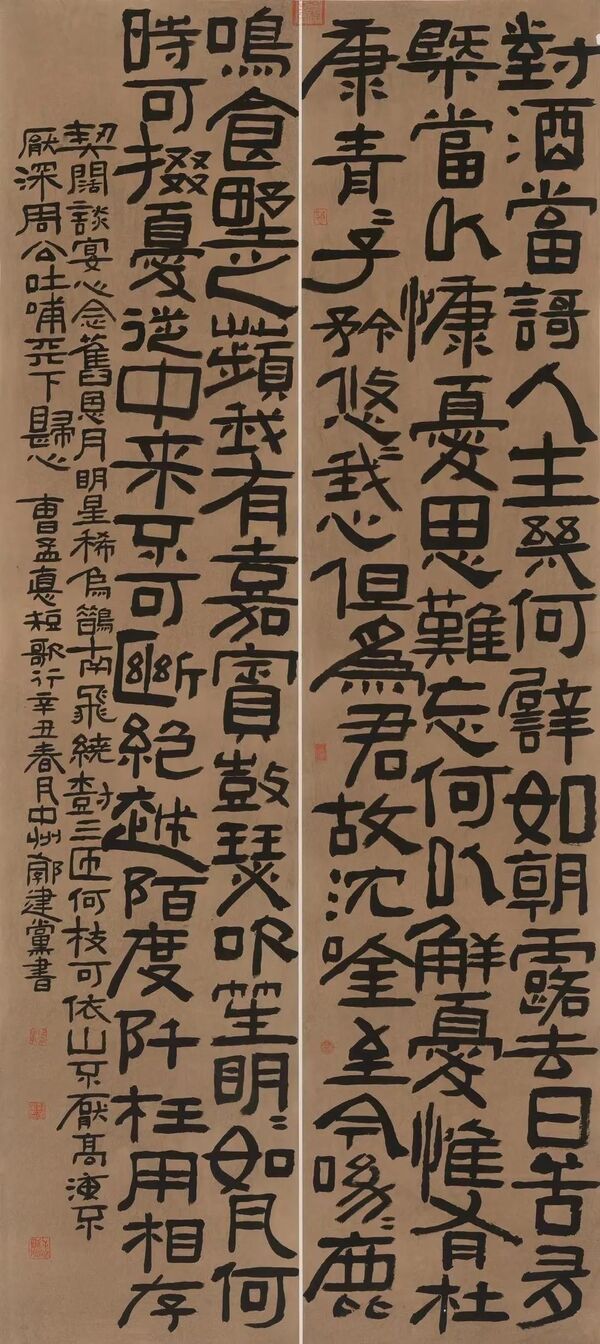 對酒當謌人生幾何譬如朝露去日苦多
槩當以慷憂思難忘何以解憂惟有杜
康青〻子衿悠〻我心但爲君故沈唫至今呦〻鹿
鳴食埜之蘋我有嘉賓鼓瑟吹笙明〻如月何
時可掇憂從中来不可斷絕越陌度阡枉用相存
契闊談宴心念舊恩月明星稀烏鵲南飛繞樹三匝何枝可依山不厭高海不
厭深周公吐哺天下歸心 曹孟德短歌行辛丑春月中州郭建黨書